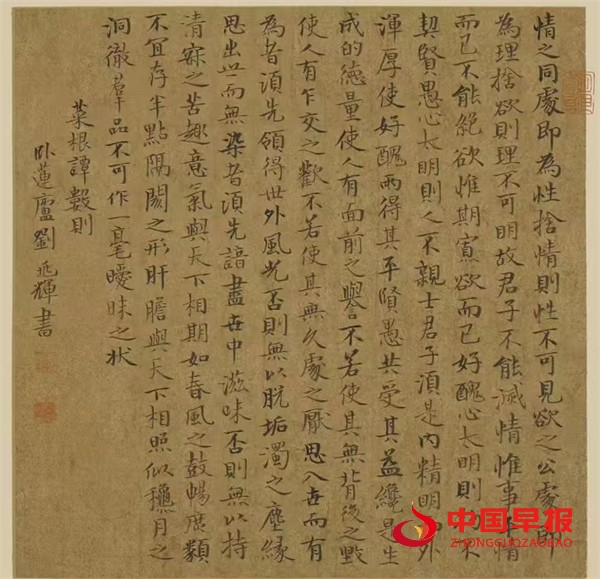 情之同處即為性捨情則性不可見欲之公處即
為理捨欲則理不可明故君子不能滅情惟事平情
而已不能絕欲惟期寡欲而已好醜心太明則不
契賢愚心太明則人不親士君子須是內精明外
渾厚使好醜兩得其平賢愚共受其益纔是生
成的德量使人有面前之譽不若使其無背後之毀
使人有乍交之歡不若使其無久處之厭思入世而有
為者須先領得世外風光否則無以脫垢濁之塵緣
思出世而無染者須先諳盡世中滋味否則無以持
清寂之苦趣意氣與天下相期如春風之鼓暢庶類
不宜存半點隔閡之形肝膽與天下相照似穐月之
洞徹羣品不可作一毫曖昧之狀
菜根譚數則
臥蓮廬劉兆輝書
中国早报
ZHONGGUOZAOBAO